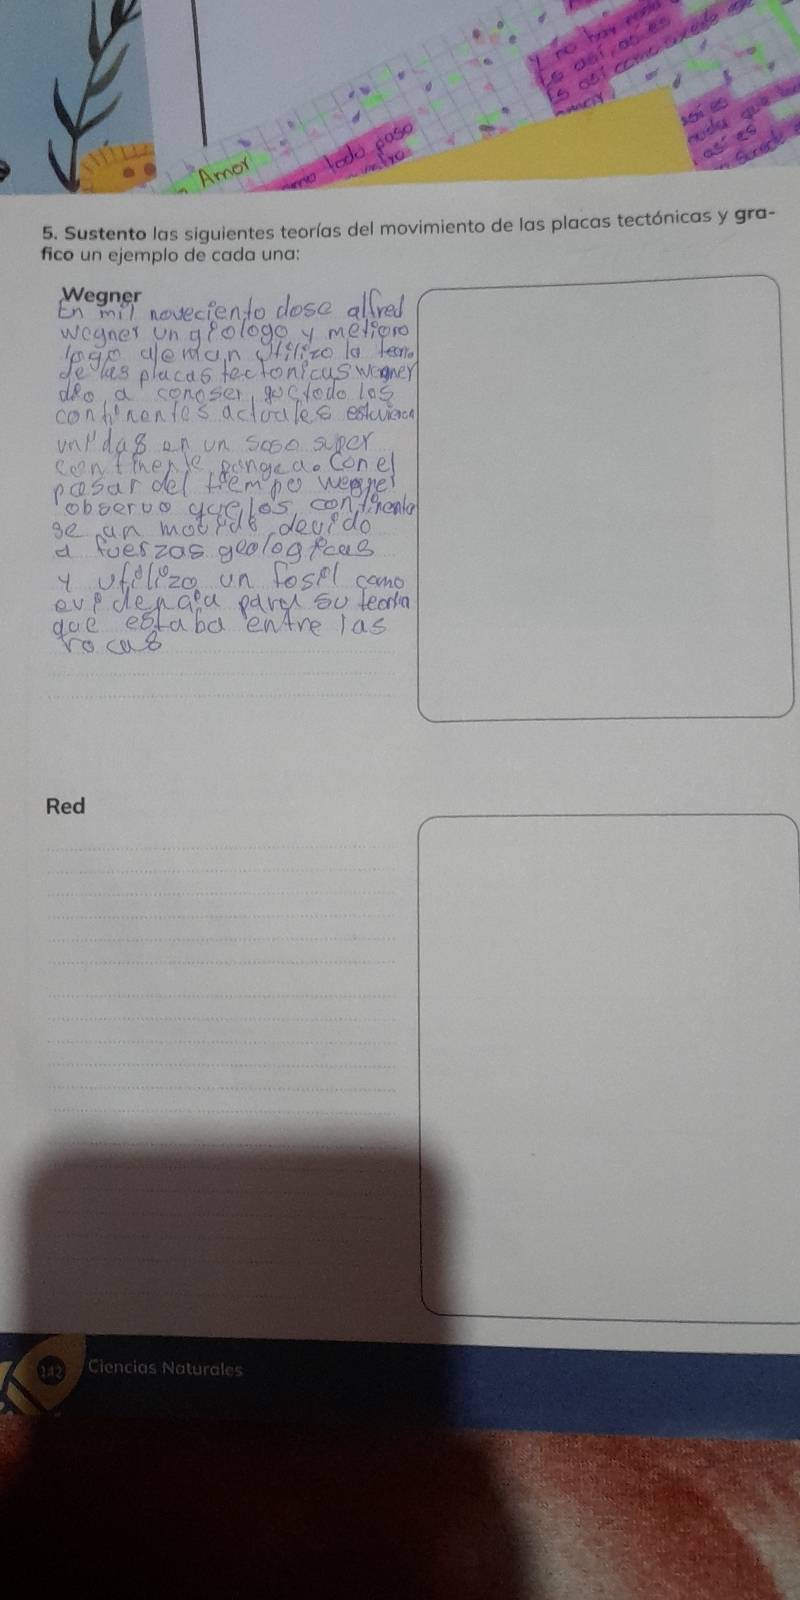 y no hay nada
Es así, así es
Es así como sucede
amor
Amor
todo paso
nuestro
así es
nada que
así es
5. Sustento las siguientes teorías del movimiento de las placas tectónicas y gra-
fico un ejemplo de cada una:
Wegner
En mil noveciento dose alfred
wegner un giologo y metioro
logo aleman utilizo la teoria
de las placas tectonicas wegner
dio a conoser que todo los
continentes actuales estuvieron
unidas en un soso super
continente pangea. Con el
pasar del tiempo wegner
observo que los continente
se an movido devido
a fuerzas geologicas
y utilizo un fosil como
evidencia para su teoria
que estaba entre las
rocas
Red
142 Ciencias Naturales